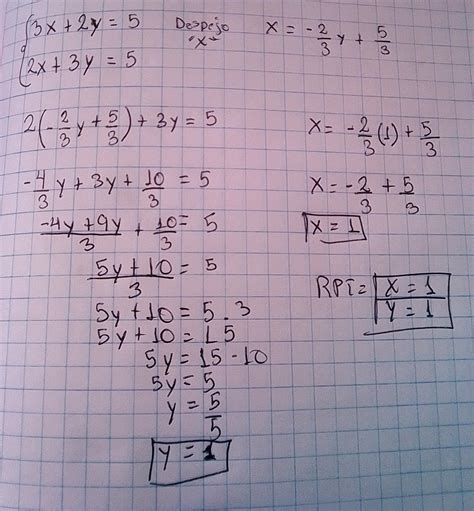 3x + 2y = 5
2x + 3y = 5
Despejo "x"
x = -2/3 y + 5/3
2(-2/3 y + 5/3) + 3y = 5
-4/3 y + 3y + 10/3 = 5
(-4y + 9y)/3 + 10/3 = 5
(5y + 10)/3 = 5
5y + 10 = 5 . 3
5y + 10 = 15
5y = 15 - 10
5y = 5
y = 5/5
y = 1
x = -2/3 (1) + 5/3
x = -2/3 + 5/3
x = 1
RPT=
x = 1
y = 1